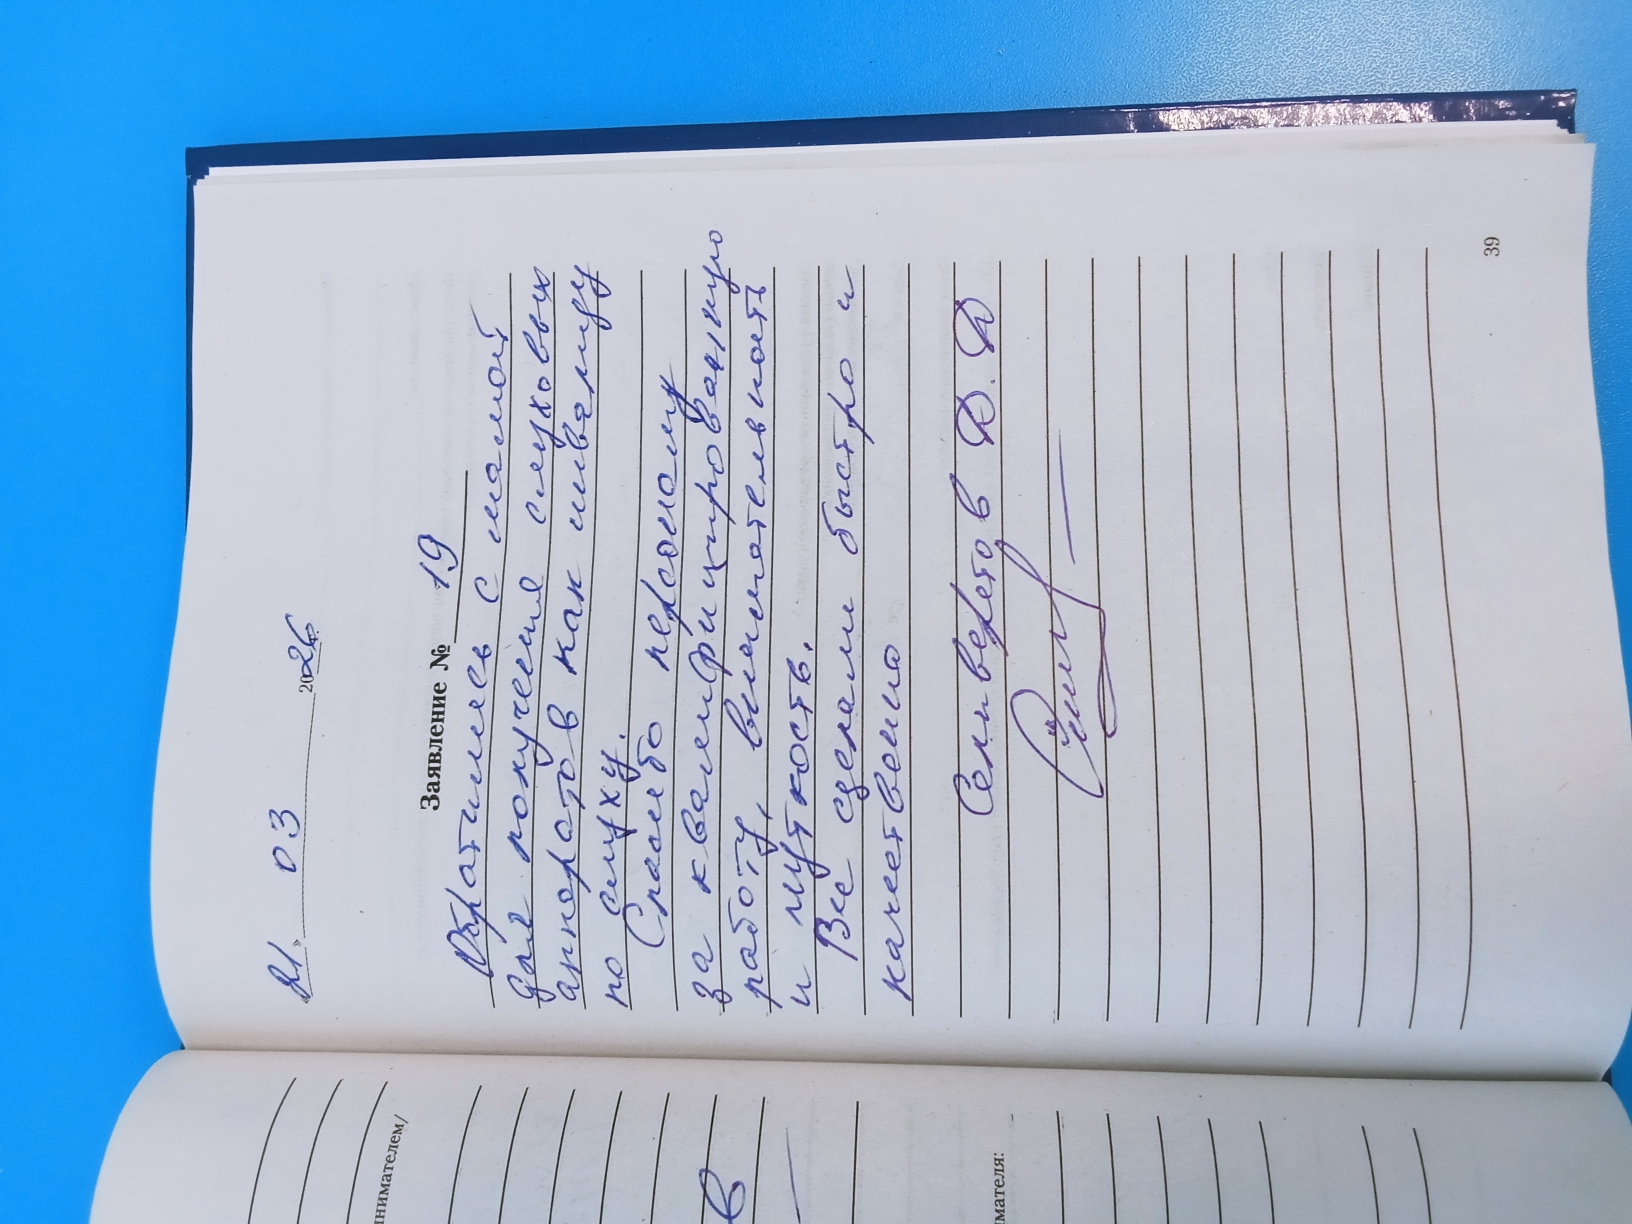 21 » 03 2026
Заявление № 19
Обратились с мамой
для получения слуховых
аппаратов как инвалиду
по слуху.
Спасибо персоналу
за квалифицированную
работу, внимательность
и чуткость.
Все сделали быстро и
качественно
Селиверстов Д. Д
39
нимателем/
в
мателя: